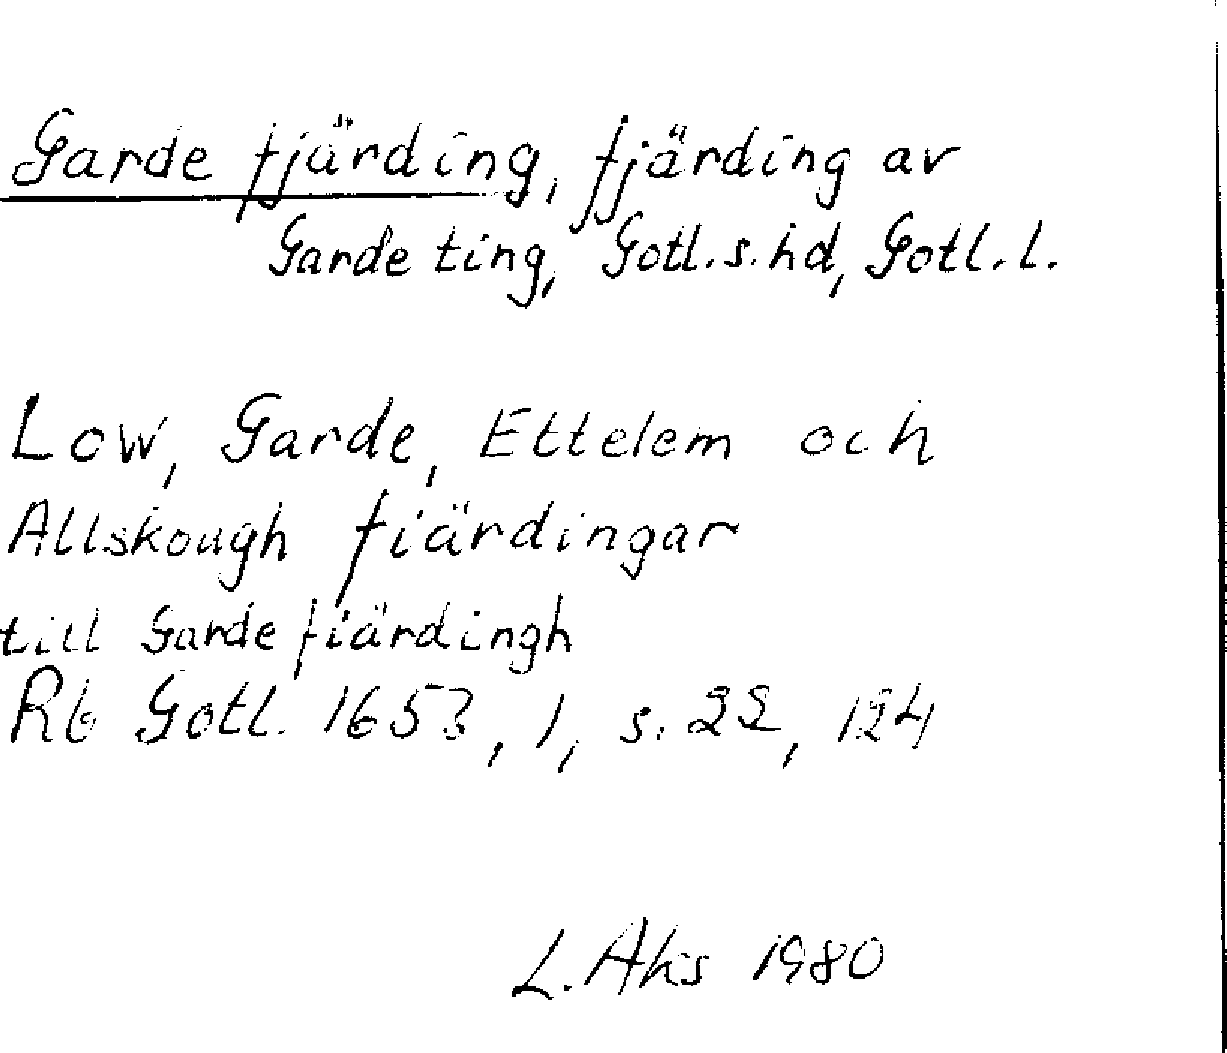 Garde fjärding, fjärding av
Garde ting, Gotl. s. hd, Gotl. l.
Low, Garde, Ettelem och
Allskough fiärdingar
till Garde fiärdingh
Rb Gotl. 1653, 1, s. 22, 124
L. Aks 1980